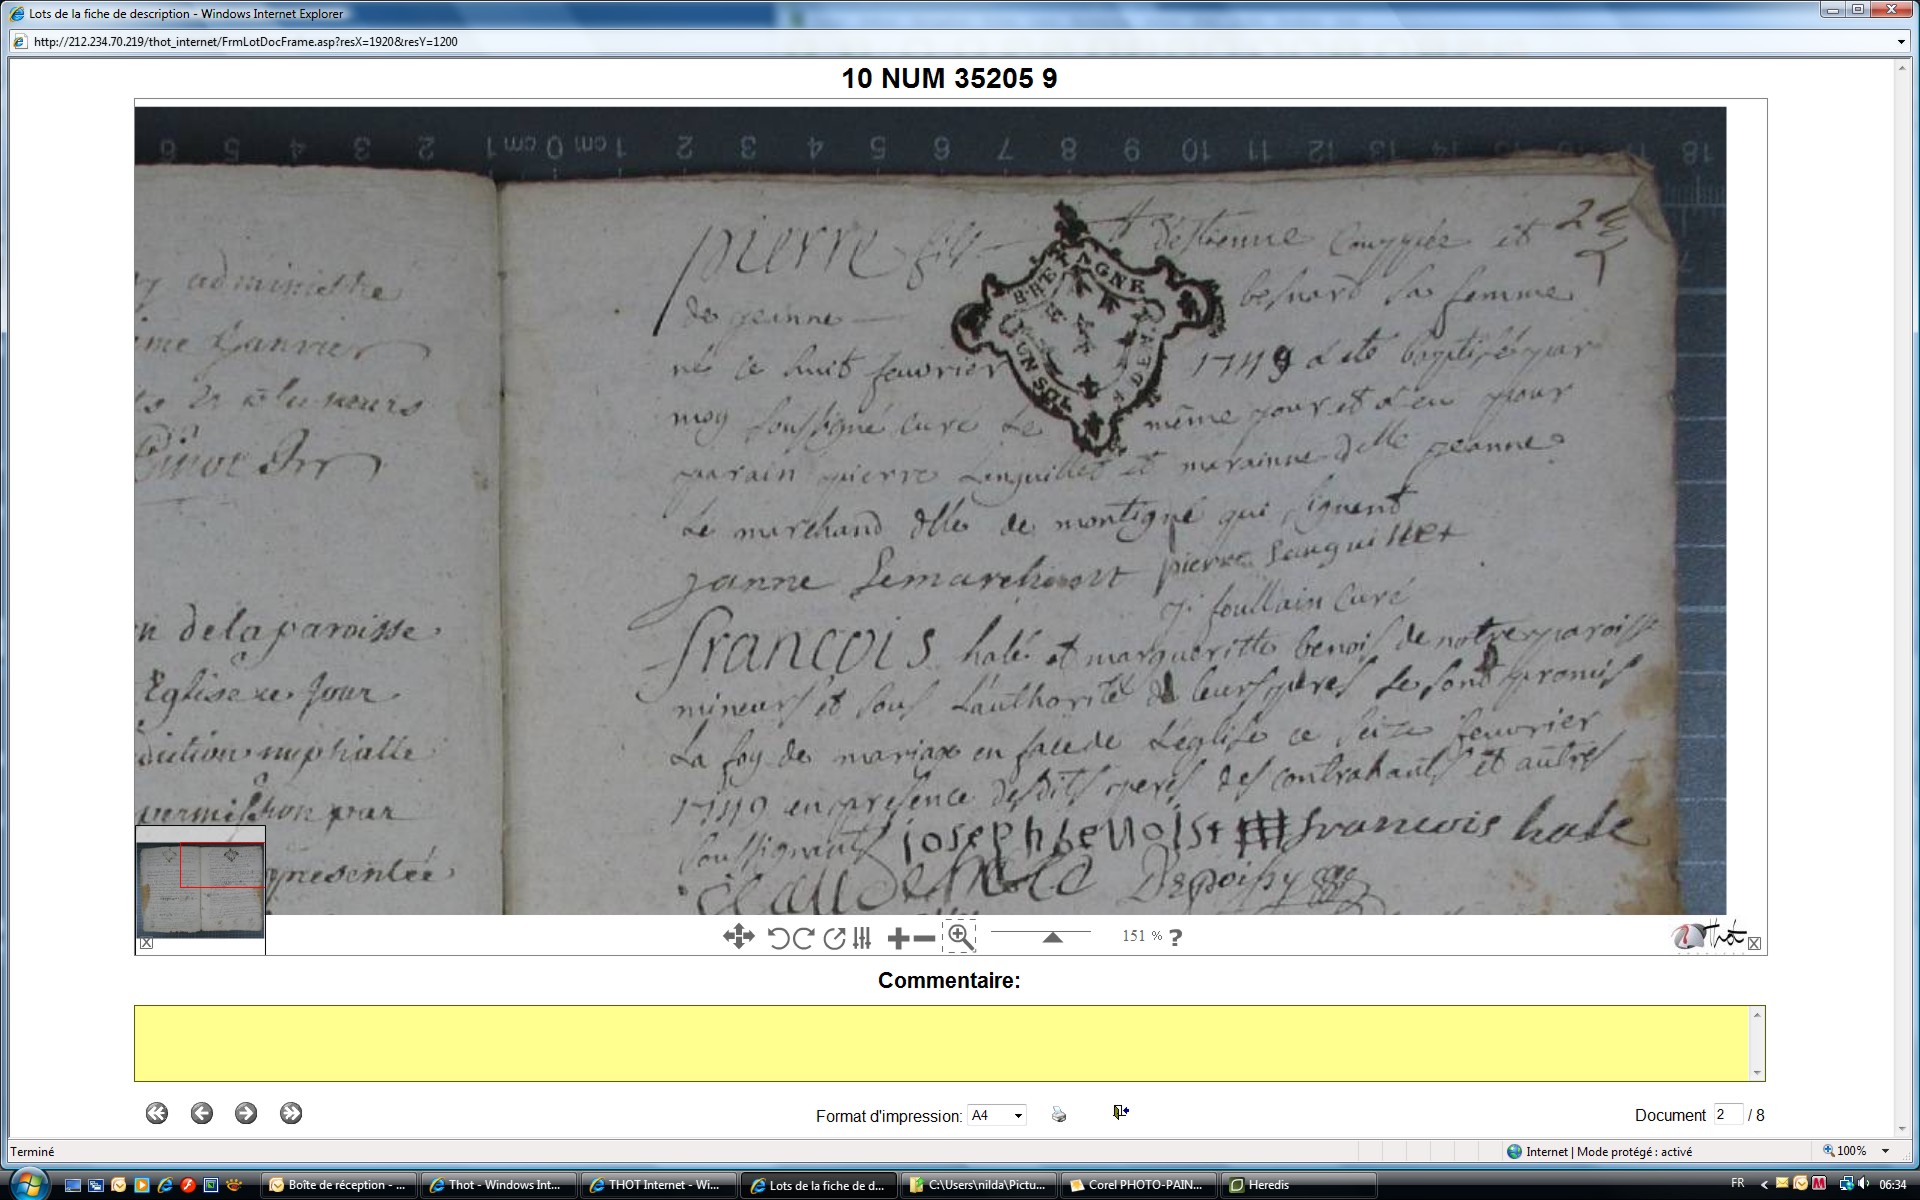 Lots de la fiche de description - Windows Internet Explorer
http://212.234.70.219/thot_internet/FrmLotDocFrame.asp?resX=1920&resY=1200
10 NUM 35205 9
6 5 4 3 2 1 cm 0 1 cm 1 2 3 4 5 6 7 8 9 10 11 12 13 14 15 16 17 18
administre
ime Janvier
pierre fils d'estienne Couppée et
BRETAGNE
UN SOL
de jeanne besnard sa femme
né ce huit feuvrier 1749 a été baptisé par
moy soussigné curé le même jour et a eu pour
parain pierre Languillet et marainne delle jeanne
Le marchand dlle de montigné qui signent
janne Lemarchant pierre Languillet
foullain curé
n de la paroisse
Eglise ce jour
diction nuptialle
permission par
presentée
francois halé et margueritte benois de notre paroisse
mineurs et sous l'authorité de leurs peres se sont promis
La foy de mariage en face de L'eglise ce seize feuvrier
1749 en presence desdits peres des contrahants et autres
soussignants josephbenoist francois hale
151 % ?
Thot
Commentaire:
Format d'impression: A4
Document 2 / 8
Terminé
Internet | Mode protégé : activé
100%
Boîte de réception - ...
Thot - Windows Int...
THOT Internet - Wi...
Lots de la fiche de d...
C:\Users\nilda\Pictu...
Corel PHOTO-PAIN...
Heredis
FR
06:34